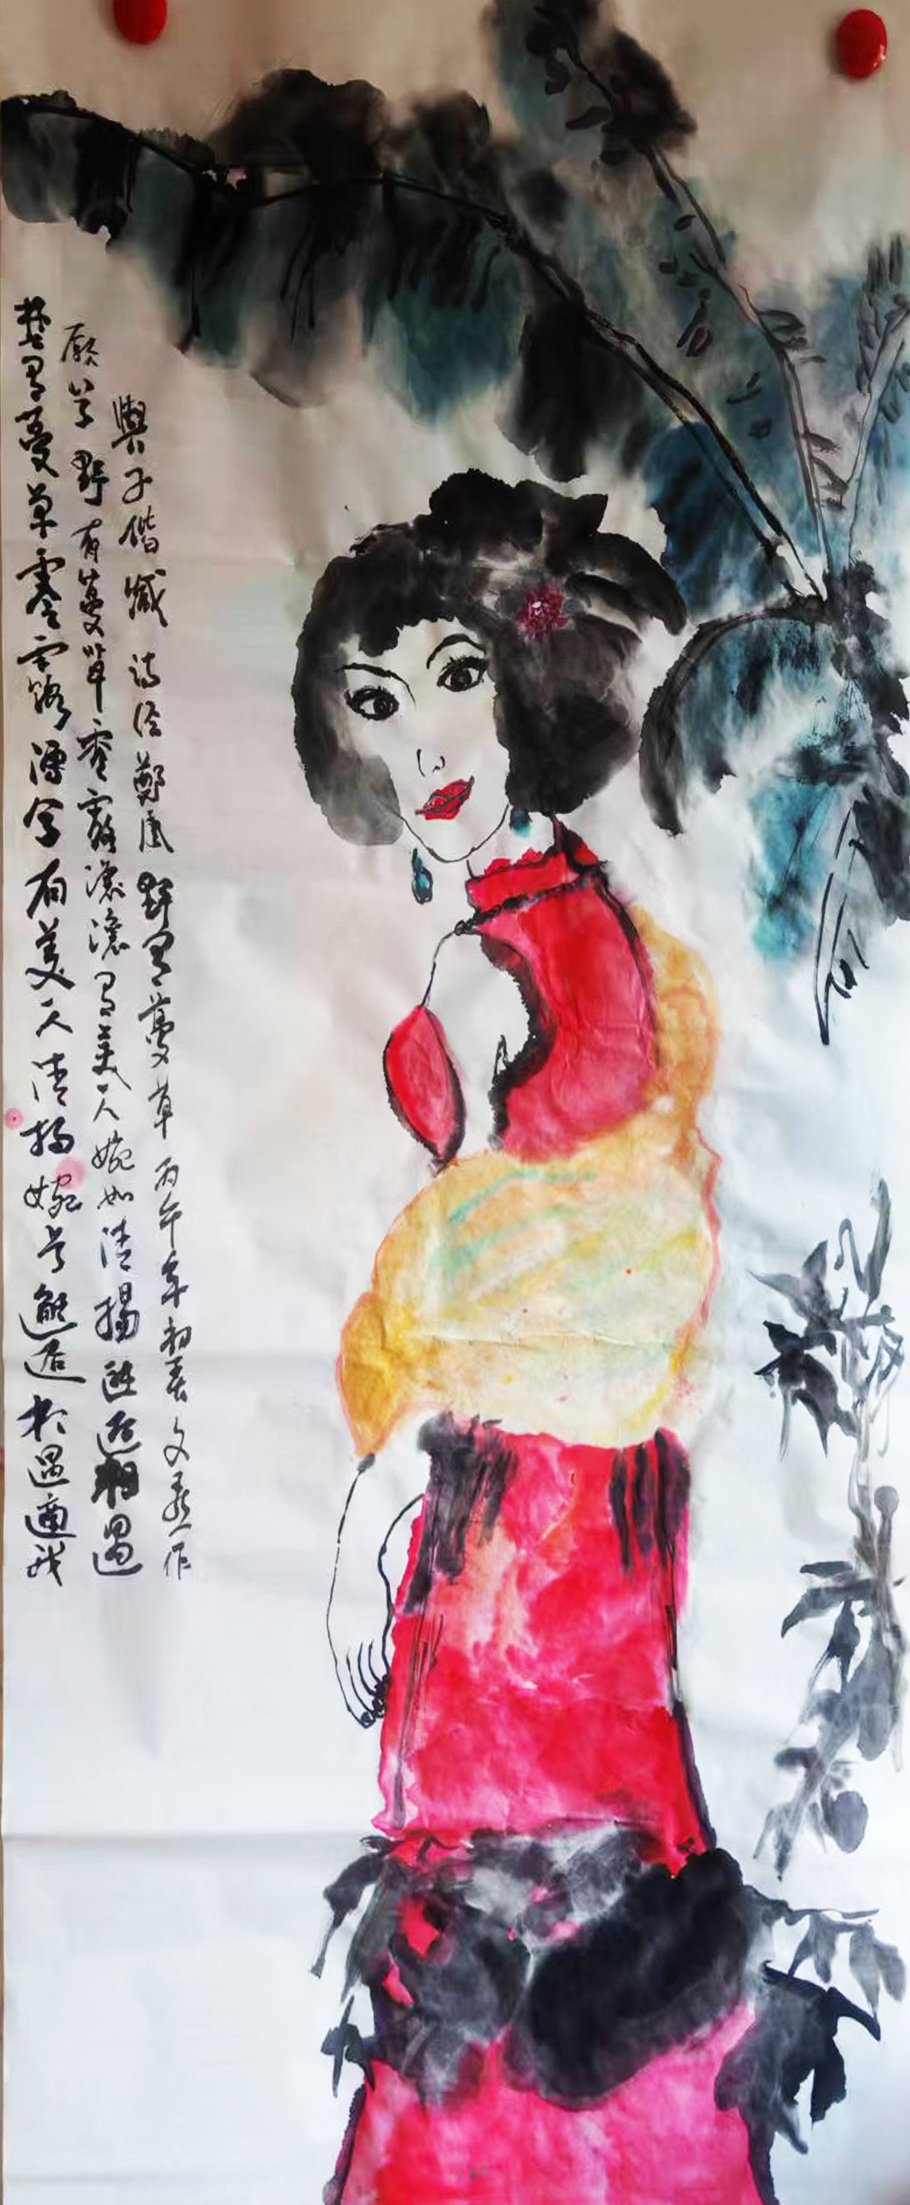 埜有蔓草零露漙兮有美一人清揚婉兮邂逅相遇適我
願兮野有蔓草零露瀼瀼有美一人婉如清揚邂逅相遇
與子偕臧 詩經鄭風野有蔓草 丙午年初春文作